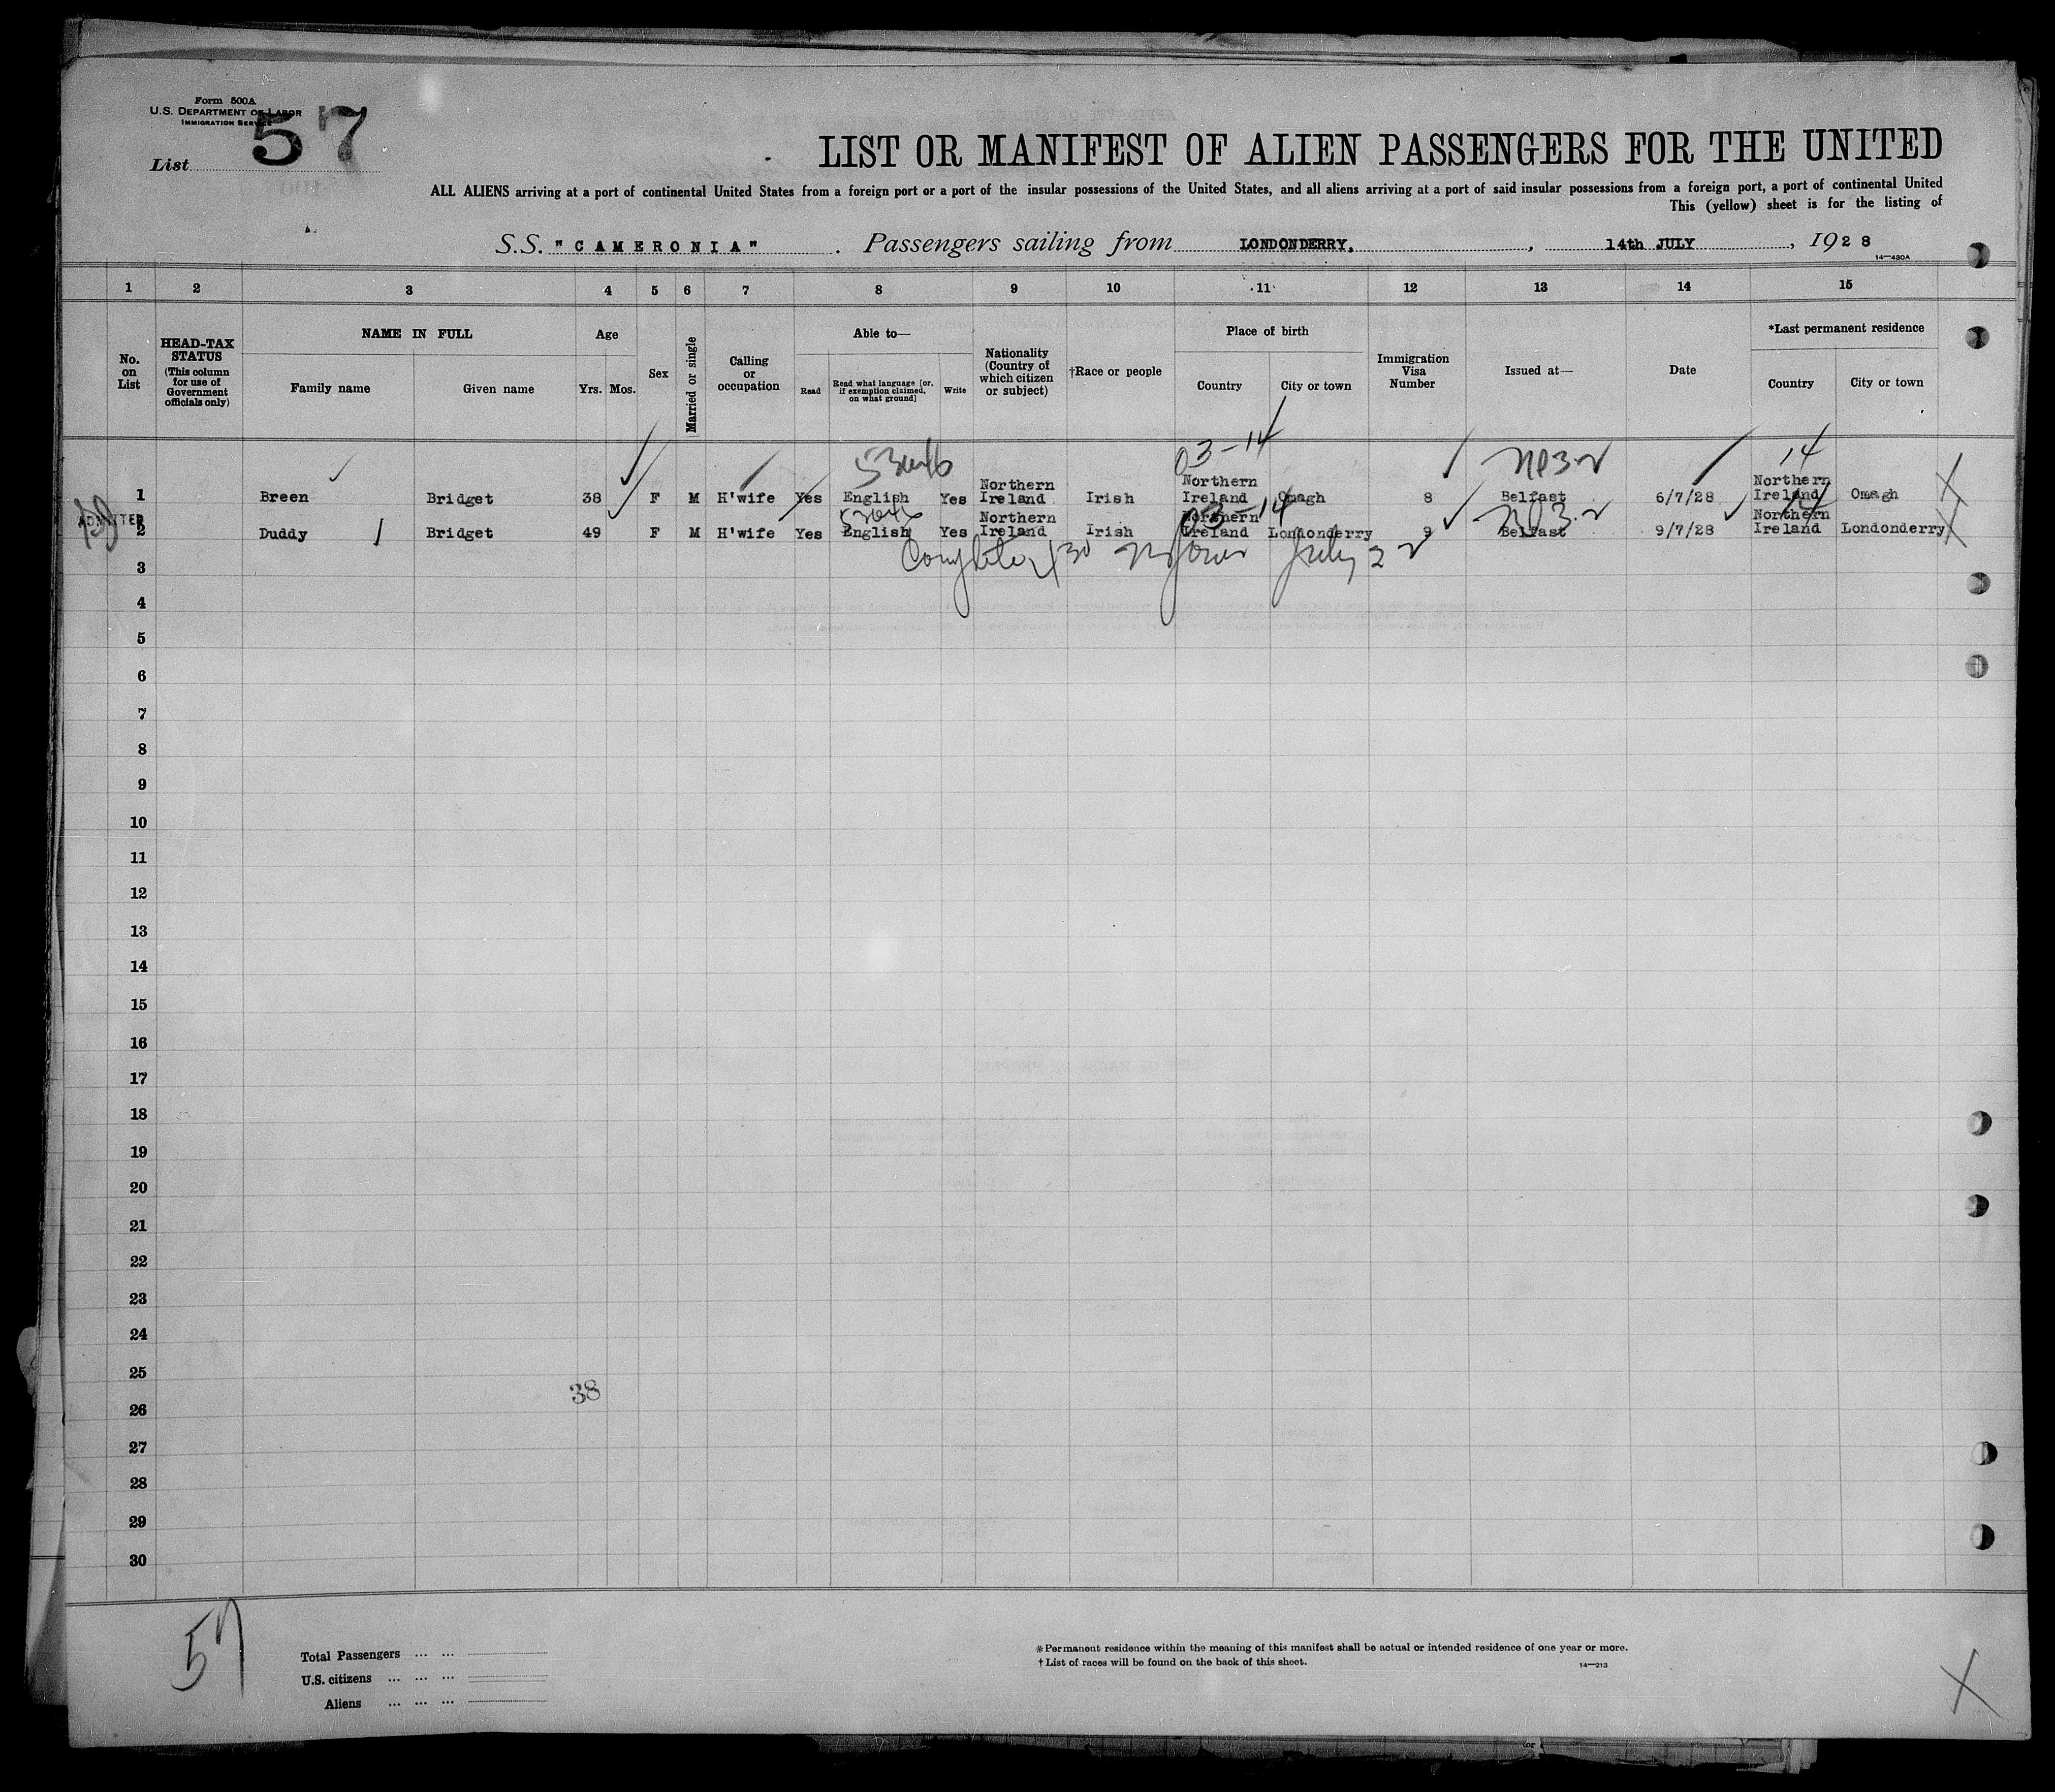 Form 500A
U.S. DEPARTMENT OF LABOR
IMMIGRATION SERVICE
List 57
LIST OR MANIFEST OF ALIEN PASSENGERS FOR THE UNITED
ALL ALIENS arriving at a port of continental United States from a foreign port or a port of the insular possessions of the United States, and all aliens arriving at a port of said insular possessions from a foreign port, a port of continental United
This (yellow) sheet is for the listing of
S.S. "CAMERONIA". Passengers sailing from LONDONDERRY, 14th JULY, 1928
14—430A
1 2 3 4 5 6 7 8 9 10 11 12 13 14 15
No. on List
HEAD-TAX STATUS (This column for use of Government officials only)
NAME IN FULL
Family name Given name
Age
Yrs. Mos.
Sex
Married or single
Calling or occupation
Able to—
Read Read what language [or, if exemption claimed, on what ground] Write
Nationality (Country of which citizen or subject)
†Race or people
Place of birth
Country City or town
Immigration Visa Number
Issued at—
Date
*Last permanent residence
Country City or town
03-14 14
1 Breen Bridget 38 F M H'wife Yes English Yes Northern Ireland Irish Northern Ireland Omagh 8 Belfast 6/7/28 Northern Ireland Omagh
ADMITTED
03-14 14
2 Duddy Bridget 49 F M H'wife Yes English Yes Northern Ireland Irish Northern Ireland Londonderry 9 Belfast 9/7/28 Northern Ireland Londonderry
July 22
3
4
5
6
7
8
9
10
11
12
13
14
15
16
17
18
19
20
21
22
23
24
25
38
26
27
28
29
30
57
Total Passengers ... ...
U.S. citizens ... ... ...
Aliens ... ... ...
*Permanent residence within the meaning of this manifest shall be actual or intended residence of one year or more.
†List of races will be found on the back of this sheet.
14—213